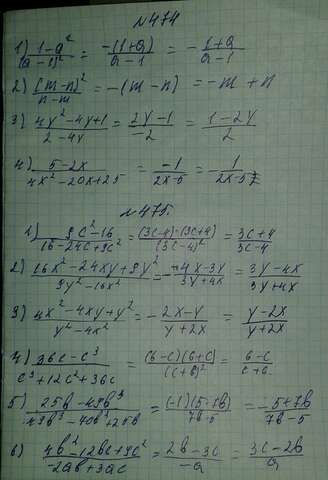 №474
1) 1-a²/(a-1)² = -(1+a)/a-1 = -1+a/a-1
2) (m-n)²/n-m = -(m-n) = -m+n
3) 4y²-4y+1/2-4y = 2y-1/-2 = 1-2y/2
4) 5-2x/4x²-20x+25 = -1/2x-5 = 1/2x-5
№475.
1) 9c²-16/16-24c+9c² = (3c-4)·(3c+4)/(3c-4)² = 3c+4/3c-4
2) 16x²-24xy+9y²/9y²-16x² = -4x-3y/3y+4x = 3y-4x/3y+4x
3) 4x²-4xy+y²/y²-4x² = -2x-y/y+2x = y-2x/y+2x
4) 36c-c³/c³+12c²+36c = (6-c)(6+c)/(c+6)² = 6-c/c+6
5) 25b-49b³/49b³-70b²+25b = (-1)(5+7b)/7b-5 = -5+7b/7b-5
6) 4b²-12bc+9c²/-2ab+3ac = 2b-3c/-a = 3c-2b/a